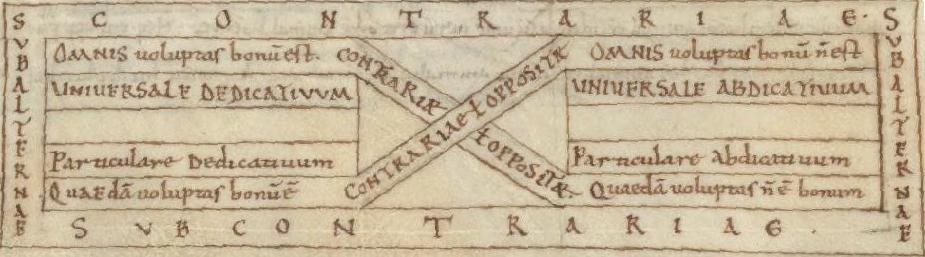 CONTRARIAE.
SUBALTERNAE
OMNIS voluptas bonū est.
UNIUERSALE DEDICATIVUM
Particulare Dedicatiuum
Quaedā voluptas bonū ē
CONTRARIAE ł OPPOSITAE
CONTRARIAE ł OPPOSITAE
OMNIS voluptas bonū n̄ est
UNIUERSALE ABDICATIUUM
Particulare Abdicatiuum
Quaedā uoluptas n̄ ē bonum
SUBALTERNAE
SVBCONTRARIAE.